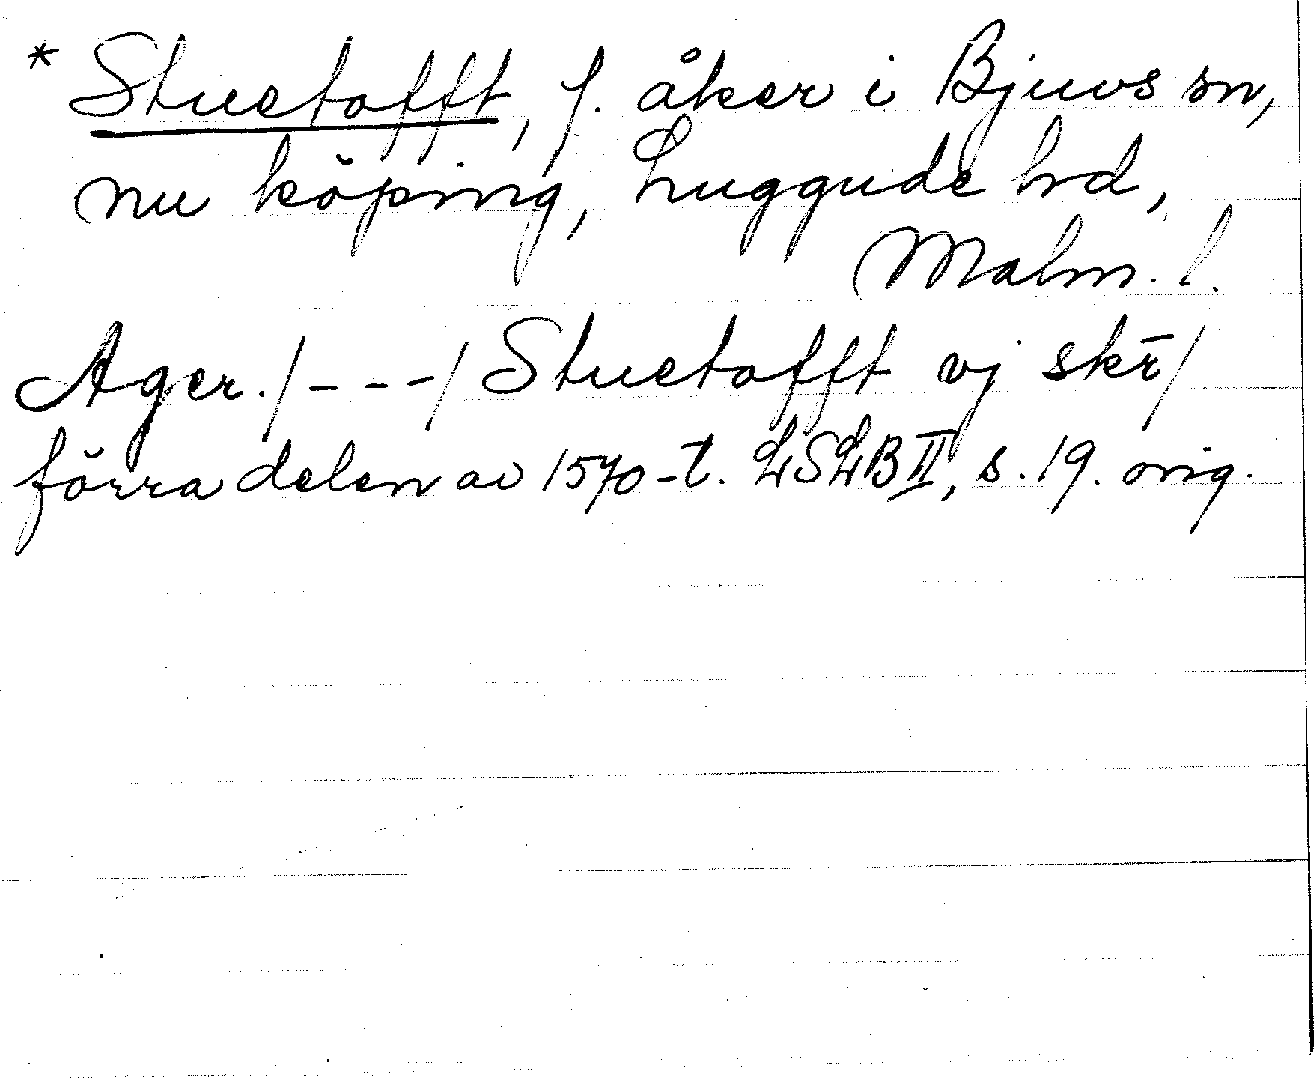 * Stuetofft, f. åker i Bjuvs sn,
nu köping, Luggude hd,
Malm. l.
Ager. /---/ Stuetofft vj skr̄/
förra delen av 1570-t. LSLB II, s. 19. orig.